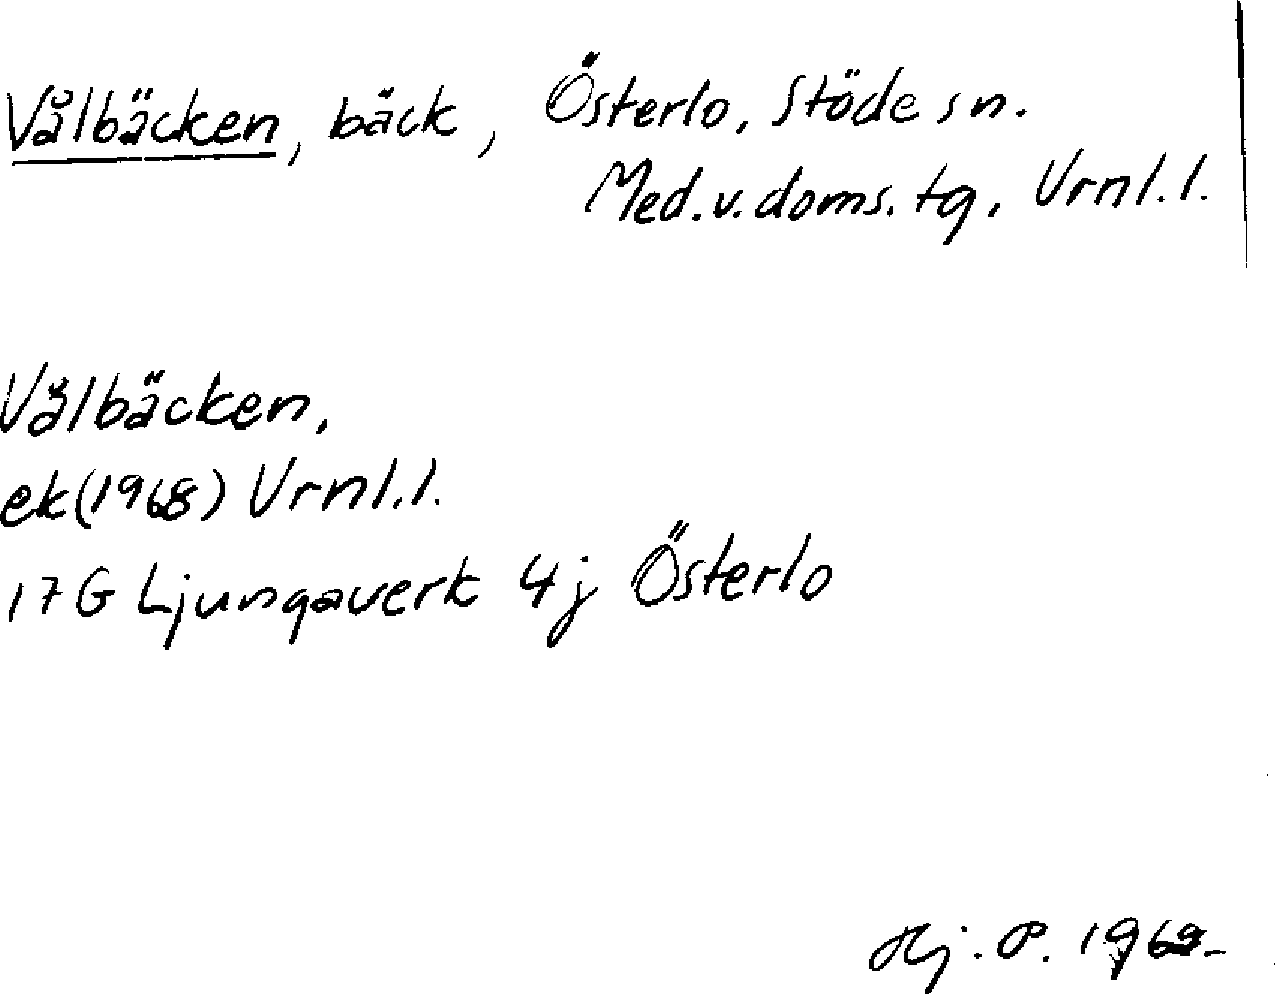 Vålbäcken, bäck, Österlo, Stöde sn.
Med.v.doms.tg, Vrnl.l.
Vålbäcken,
ek(1968) Vrnl.l.
17G Ljungaverk 4j Österlo
Hj. P. 1969